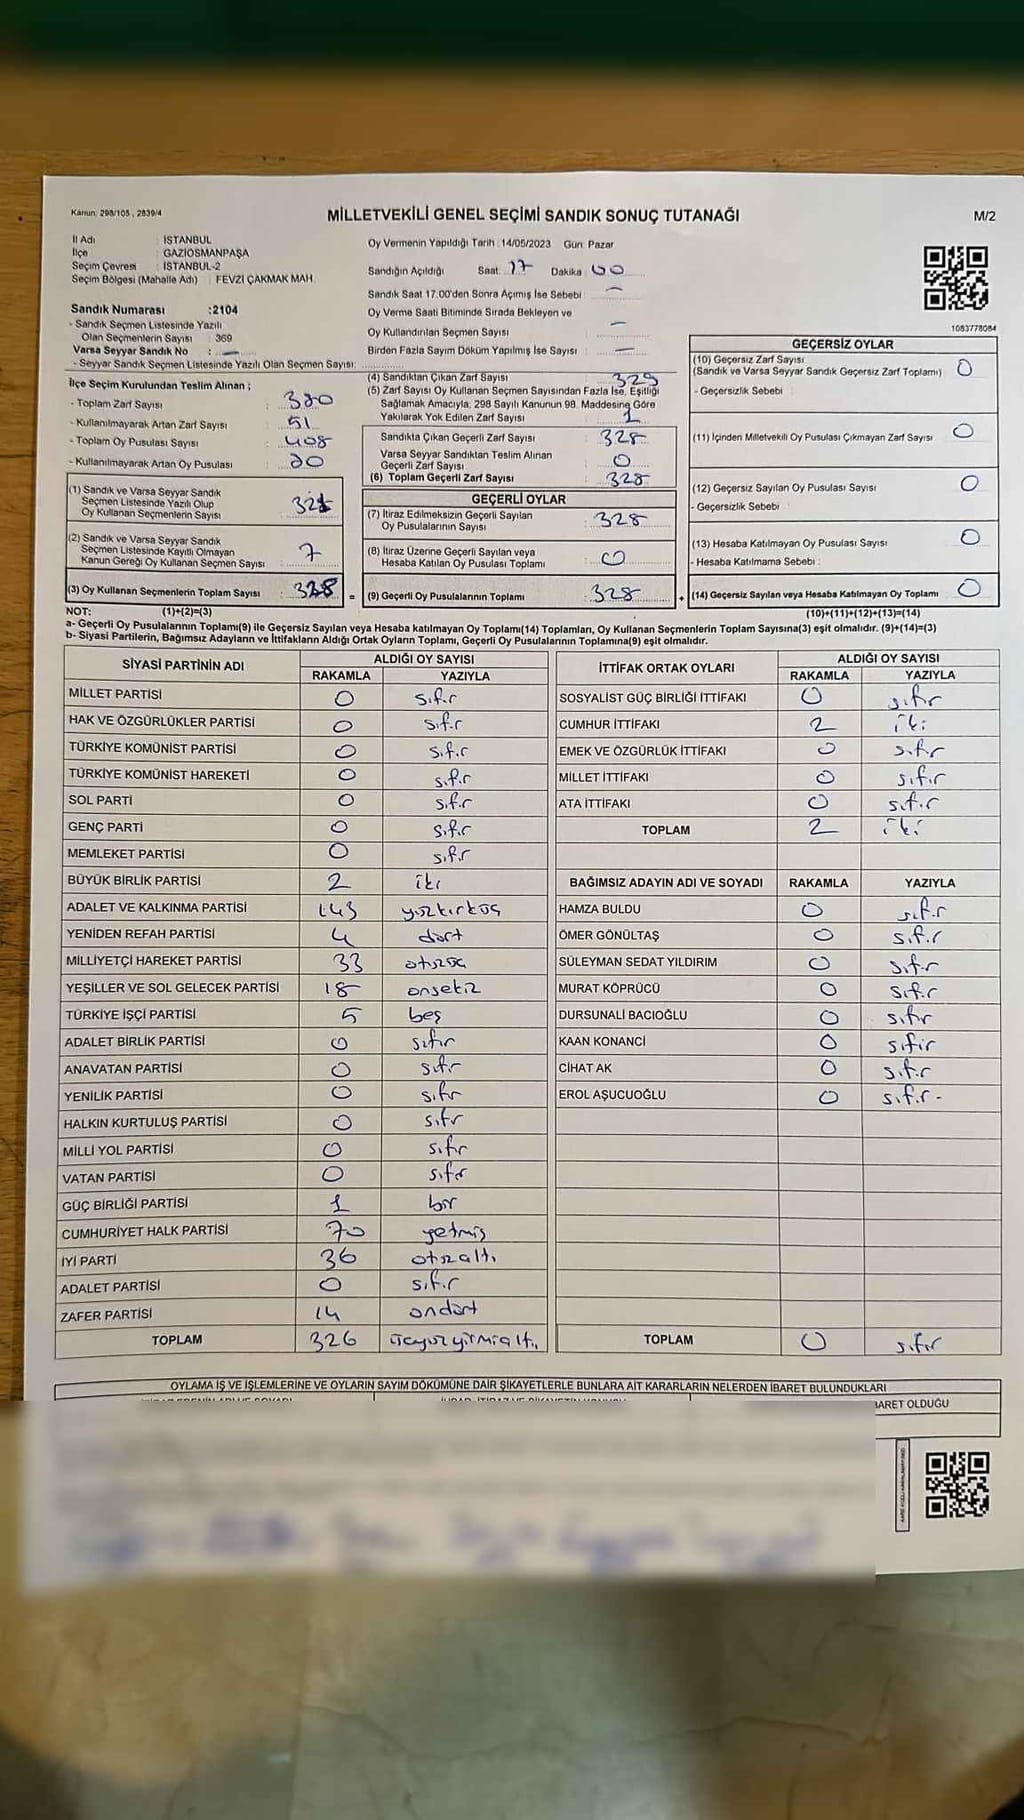 Kanun: 298/105 , 2839/4
MİLLETVEKİLİ GENEL SEÇİMİ SANDIK SONUÇ TUTANAĞI
M/2
İl Adı : İSTANBUL
İlçe : GAZİOSMANPAŞA
Seçim Çevresi : İSTANBUL-2
Seçim Bölgesi (Mahalle Adı) : FEVZİ ÇAKMAK MAH.
Sandık Numarası :2104
- Sandık Seçmen Listesinde Yazılı
Olan Seçmenlerin Sayısı : 369
Varsa Seyyar Sandık No : —
- Seyyar Sandık Seçmen Listesinde Yazılı Olan Seçmen Sayısı:
Oy Vermenin Yapıldığı Tarih :14/05/2023 Gün: Pazar
Sandığın Açıldığı Saat: 17 Dakika 00
Sandık Saat 17.00'den Sonra Açılmış İse Sebebi : —
Oy Verme Saati Bitiminde Sırada Bekleyen ve
Oy Kullandırılan Seçmen Sayısı : —
Birden Fazla Sayım Döküm Yapılmış İse Sayısı : —
1083778084
İlçe Seçim Kurulundan Teslim Alınan ;
- Toplam Zarf Sayısı : 380
- Kullanılmayarak Artan Zarf Sayısı : 51
- Toplam Oy Pusulası Sayısı : 408
- Kullanılmayarak Artan Oy Pusulası : 80
(1) Sandık ve Varsa Seyyar Sandık
Seçmen Listesinde Yazılı Olup
Oy Kullanan Seçmenlerin Sayısı : 321
(2) Sandık ve Varsa Seyyar Sandık
Seçmen Listesinde Kayıtlı Olmayan
Kanun Gereği Oy Kullanan Seçmen Sayısı : 7
(3) Oy Kullanan Seçmenlerin Toplam Sayısı : 328
(4) Sandıktan Çıkan Zarf Sayısı : 329
(5) Zarf Sayısı Oy Kullanan Seçmen Sayısından Fazla İse, Eşitliği
Sağlamak Amacıyla, 298 Sayılı Kanunun 98. Maddesine Göre
Yakılarak Yok Edilen Zarf Sayısı : 1
Sandıkta Çıkan Geçerli Zarf Sayısı : 328
Varsa Seyyar Sandıktan Teslim Alınan
Geçerli Zarf Sayısı : 0
(6) Toplam Geçerli Zarf Sayısı : 328
GEÇERLİ OYLAR
(7) İtiraz Edilmeksizin Geçerli Sayılan
Oy Pusulalarının Sayısı : 328
(8) İtiraz Üzerine Geçerli Sayılan veya
Hesaba Katılan Oy Pusulası Toplamı : 0
= (9) Geçerli Oy Pusulalarının Toplamı : 328
GEÇERSİZ OYLAR
(10) Geçersiz Zarf Sayısı
(Sandık ve Varsa Seyyar Sandık Geçersiz Zarf Toplamı) : 0
- Geçersizlik Sebebi :
(11) İçinden Milletvekili Oy Pusulası Çıkmayan Zarf Sayısı : 0
(12) Geçersiz Sayılan Oy Pusulası Sayısı : 0
- Geçersizlik Sebebi :
(13) Hesaba Katılmayan Oy Pusulası Sayısı : 0
- Hesaba Katılmama Sebebi :
+ (14) Geçersiz Sayılan veya Hesaba Katılmayan Oy Toplamı : 0
NOT: (1)+(2)=(3) (10)+(11)+(12)+(13)=(14)
a- Geçerli Oy Pusulalarının Toplamı(9) ile Geçersiz Sayılan veya Hesaba katılmayan Oy Toplamı(14) Toplamları, Oy Kullanan Seçmenlerin Toplam Sayısına(3) eşit olmalıdır. (9)+(14)=(3)
b- Siyasi Partilerin, Bağımsız Adayların ve İttifakların Aldığı Ortak Oyların Toplamı, Geçerli Oy Pusulalarının Toplamına(9) eşit olmalıdır.
SİYASİ PARTİNİN ADI ALDIĞI OY SAYISI
RAKAMLA YAZIYLA
MİLLET PARTİSİ 0 sıfır
HAK VE ÖZGÜRLÜKLER PARTİSİ 0 sıfır
TÜRKİYE KOMÜNİST PARTİSİ 0 sıfır
TÜRKİYE KOMÜNİST HAREKETİ 0 sıfır
SOL PARTİ 0 sıfır
GENÇ PARTİ 0 sıfır
MEMLEKET PARTİSİ 0 sıfır
BÜYÜK BİRLİK PARTİSİ 2 iki
ADALET VE KALKINMA PARTİSİ 143 yüzkırküç
YENİDEN REFAH PARTİSİ 4 dört
MİLLİYETÇİ HAREKET PARTİSİ 33 otuzüç
YEŞİLLER VE SOL GELECEK PARTİSİ 18 onsekiz
TÜRKİYE İŞÇİ PARTİSİ 5 beş
ADALET BİRLİK PARTİSİ 0 sıfır
ANAVATAN PARTİSİ 0 sıfır
YENİLİK PARTİSİ 0 sıfır
HALKIN KURTULUŞ PARTİSİ 0 sıfır
MİLLİ YOL PARTİSİ 0 sıfır
VATAN PARTİSİ 0 sıfır
GÜÇ BİRLİĞİ PARTİSİ 1 bir
CUMHURİYET HALK PARTİSİ 70 yetmiş
İYİ PARTİ 36 otuzaltı
ADALET PARTİSİ 0 sıfır
ZAFER PARTİSİ 14 ondört
TOPLAM 326 üçyüzyirmialtı
İTTİFAK ORTAK OYLARI ALDIĞI OY SAYISI
RAKAMLA YAZIYLA
SOSYALİST GÜÇ BİRLİĞİ İTTİFAKI 0 sıfır
CUMHUR İTTİFAKI 2 iki
EMEK VE ÖZGÜRLÜK İTTİFAKI 0 sıfır
MİLLET İTTİFAKI 0 sıfır
ATA İTTİFAKI 0 sıfır
TOPLAM 2 iki
BAĞIMSIZ ADAYIN ADI VE SOYADI RAKAMLA YAZIYLA
HAMZA BULDU 0 sıfır
ÖMER GÖNÜLTAŞ 0 sıfır
SÜLEYMAN SEDAT YILDIRIM 0 sıfır
MURAT KÖPRÜCÜ 0 sıfır
DURSUNALİ BACIOĞLU 0 sıfır
KAAN KONANCİ 0 sıfır
CİHAT AK 0 sıfır
EROL AŞUCUOĞLU 0 sıfır -
TOPLAM 0 sıfır
OYLAMA İŞ VE İŞLEMLERİNE VE OYLARIN SAYIM DÖKÜMÜNE DAİR ŞİKAYETLERLE BUNLARA AİT KARARLARIN NELERDEN İBARET BULUNDUKLARI
OLDUĞU